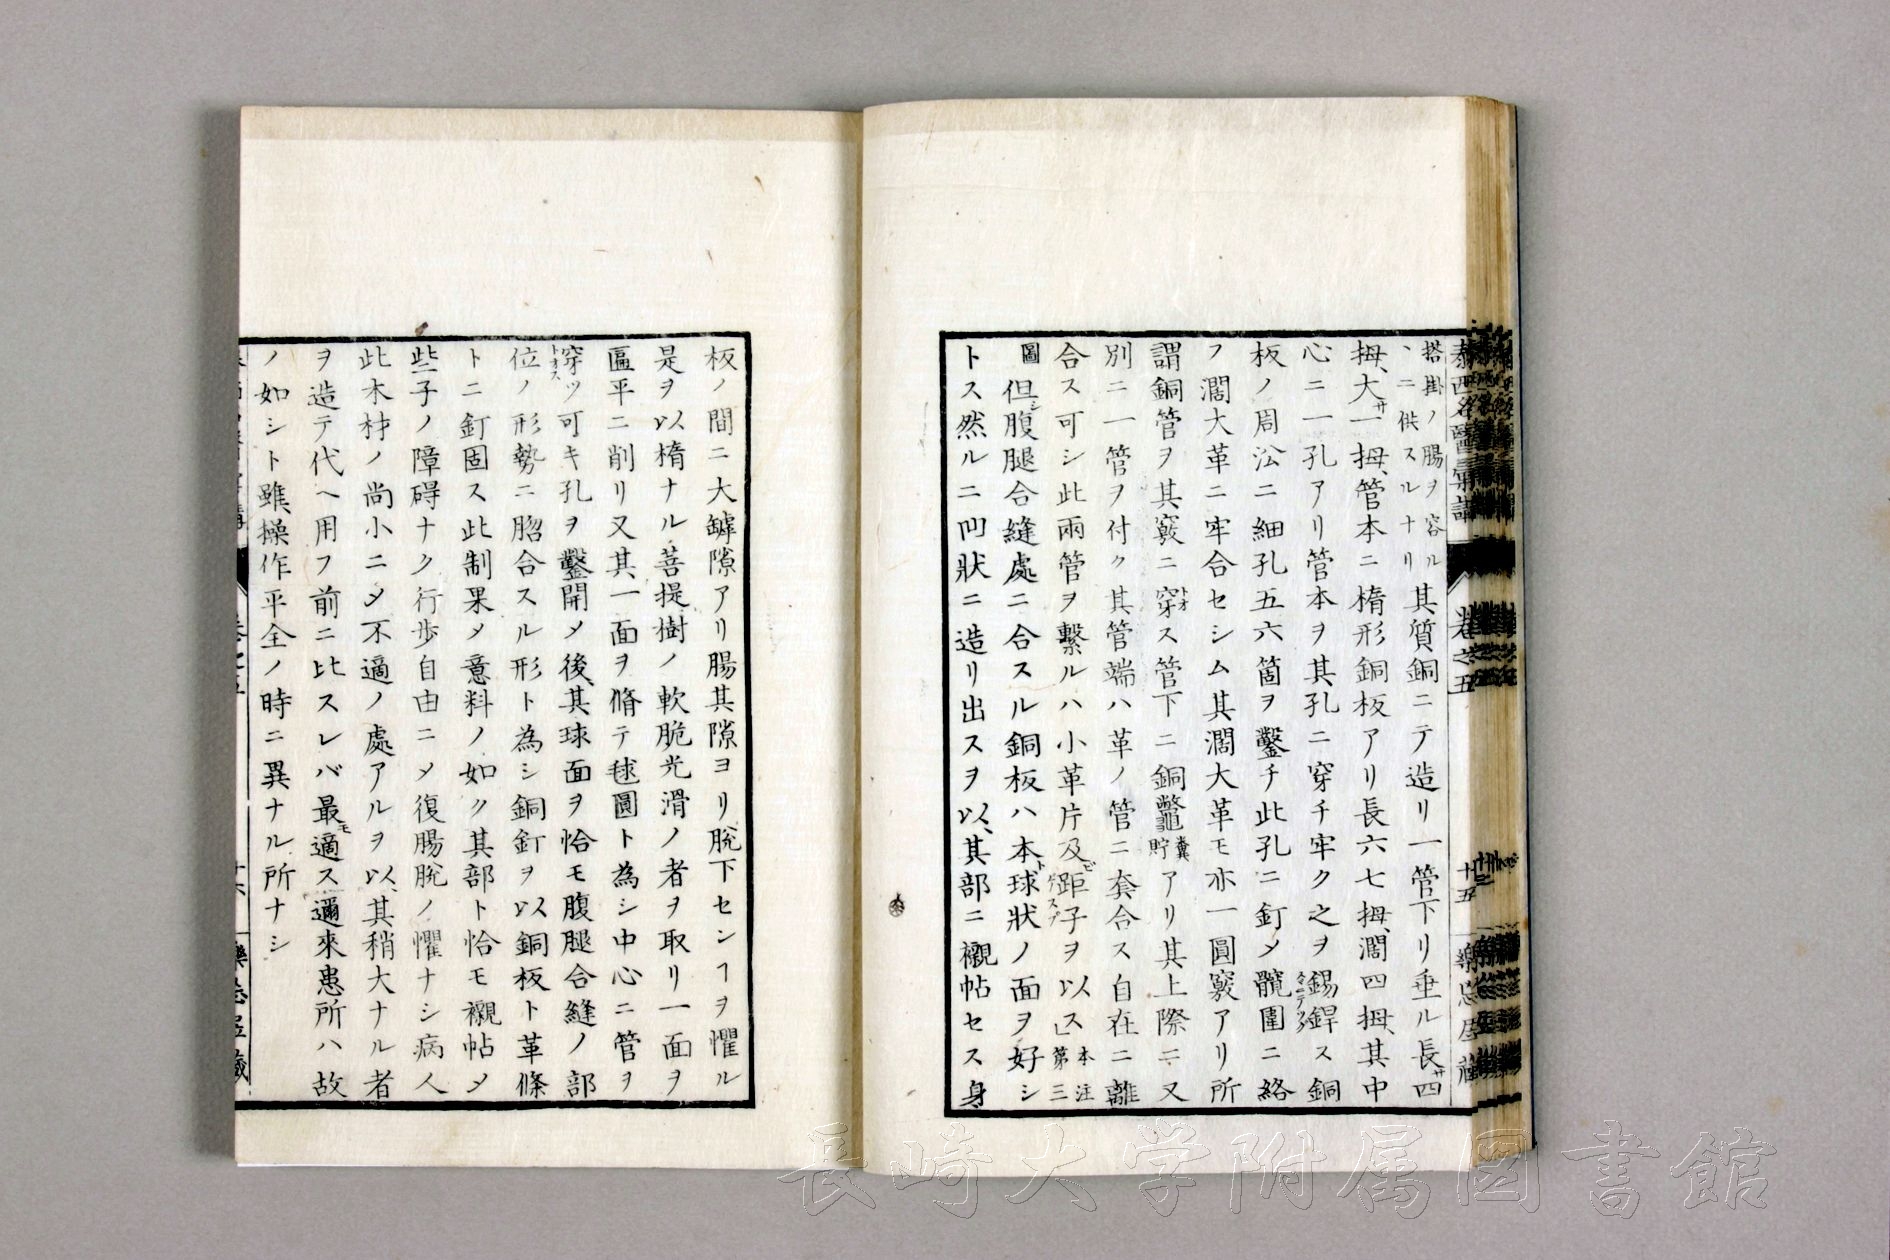 泰西名醫彙講 巻之五 十五 樂忘居藏
搭掛ノ腸ヲ容ル
ヽニ供スルナリ 其質銅ニテ造リ一管下リ垂ル長サ四
拇、大サ一拇、管本ニ楕形銅板アリ長六七拇、濶四拇、其中
心ニ一孔アリ管本ヲ其孔ニ穿チ牢ク之ヲ錫銲ス銅
板ノ周㳂ニ細孔五六箇ヲ鑿チ此孔ニ釘メ髖圍ニ絡
フ濶大革ニ牢合セシム其濶大革モ亦一圓竅アリ所
謂銅管ヲ其竅ニ穿ス管下ニ銅鼈 貯糞 アリ其上際ニ又
別ニ一管ヲ付ク其管端ハ革ノ管ニ套合ス自在ニ離
合ス可シ此兩管ヲ繫ルハ小革片及ビ距子ヲ以ス 本注第三
圖 但シ腹腿合縫處ニ合スル銅板ハ本ト球狀ノ面ヲ好シ
トス然ルニ凹狀ニ造リ出スヲ以、其部ニ襯帖セス身
板ノ間ニ大罅隙アリ腸其隙ヨリ脫下センヿヲ懼ル
是ヲ以楕ナル菩提樹ノ軟脆光滑ノ者ヲ取リ一面ヲ
匾平ニ削リ又其一面ヲ脩テ毬圓ト為シ中心ニ管ヲ
穿ツ可キ孔ヲ鑿開メ後、其球面ヲ恰モ腹腿合縫ノ部
位ノ形勢ニ䐇合スル形ト為シ銅釘ヲ以銅板ト革條
トニ釘固ス此制果メ意料ノ如ク其部ト恰モ襯帖メ
些子ノ障碍ナク行歩自由ニメ復腸脫ノ懼ナシ病人
此木材ノ尚小ニメ不適ノ處アルヲ以、其稍大ナル者
ヲ造テ代ヘ用フ前ニ比スレバ最モ適ス邇來患所ハ故
ノ如シト雖操作平全ノ時ニ異ナル所ナシ
長崎大学附属図書館